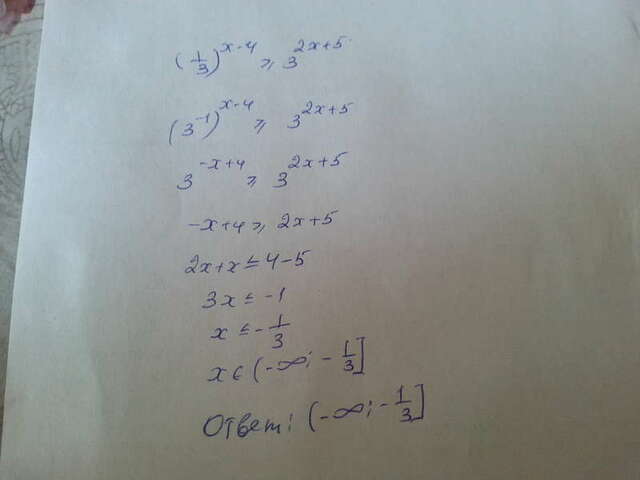 (1/3)^(x-4) ⩾ 3^(2x+5)
(3^(-1))^(x-4) ⩾ 3^(2x+5)
3^(-x+4) ⩾ 3^(2x+5)
-x+4 ⩾ 2x+5
2x+x ≤ 4-5
3x ≤ -1
x ≤ -1/3
x ∈ (-∞; -1/3]
Ответ: (-∞; -1/3]